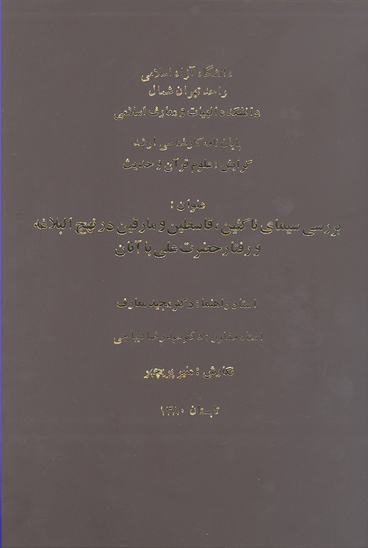 دانشگاه آزاد اسلامی
واحد تهران شمال
دانشکده الهیات و معارف اسلامی
پایان نامه کارشناسی ارشد
گرایش : علوم قرآن و حدیث
عنوان :
بررسی سیمای ناکثین ، قاسطین و مارقین در نهج البلاغه
و رفتار حضرت علی با آنان
استاد راهنما : دکتر مجید معارف
استاد مشاور : دکتر
نگارش : منیر
تابستان ۱۳۸۰